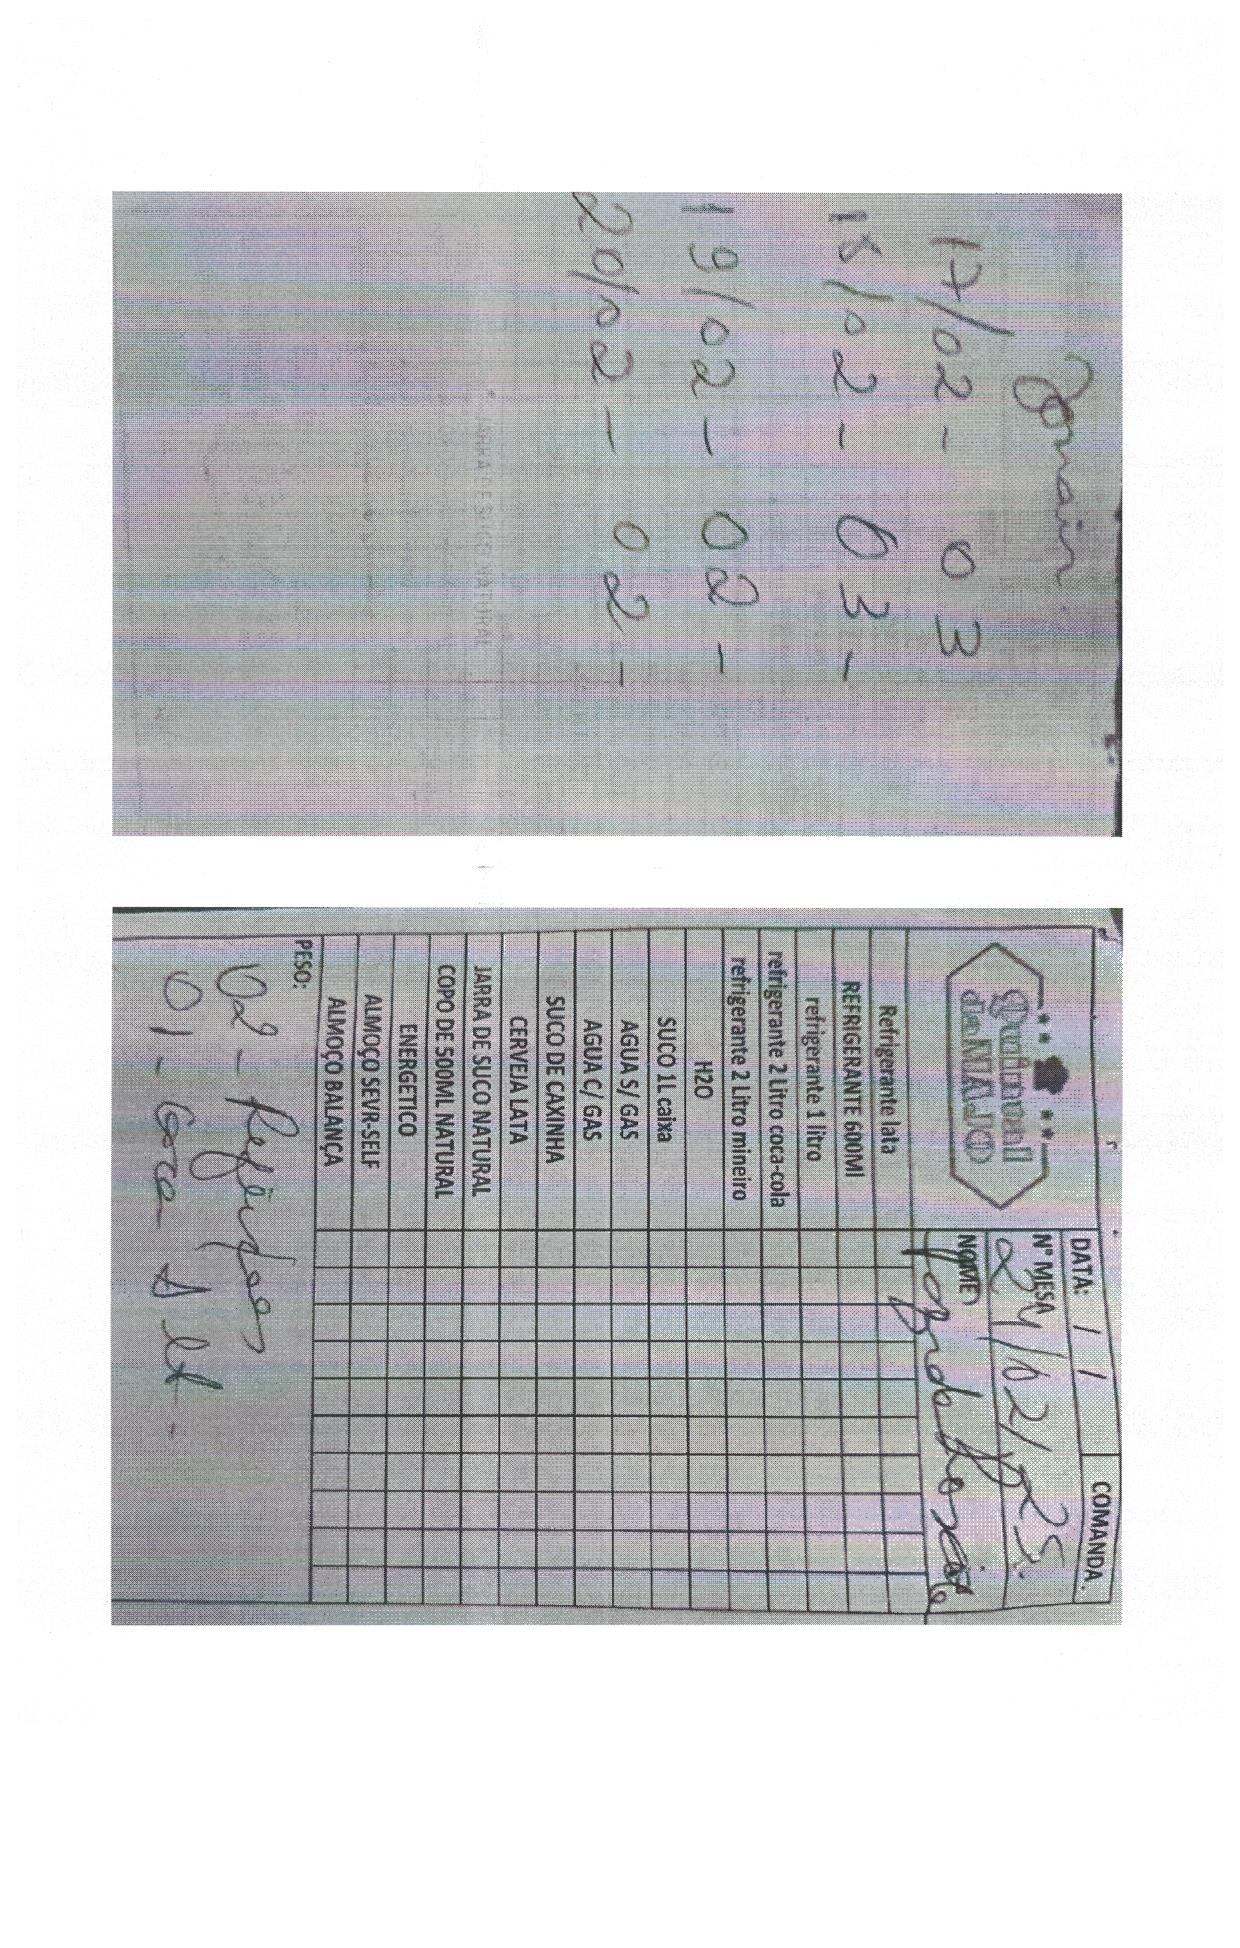 17/02 - 03
18/02 - 03 -
19/02 - 02 -
20/02 - 02 -
JARRA DE SUCO NATURAL
Quintal
da MAJO
DATA: / /
COMANDA.
N° MESA
24/02/025.
NOME
Refrigerante lata
REFRIGERANTE 600Ml
refrigerante 1 litro
refrigerante 2 Litro coca-cola
refrigerante 2 Litro mineiro
H2O
SUCO 1L caixa
AGUA S/ GAS
AGUA C/ GAS
SUCO DE CAXINHA
CERVEJA LATA
JARRA DE SUCO NATURAL
COPO DE 500ML NATURAL
ENERGETICO
ALMOÇO SEVR-SELF
ALMOÇO BALANÇA
PESO:
02 - Refeições
01 - Coca 1 lt -